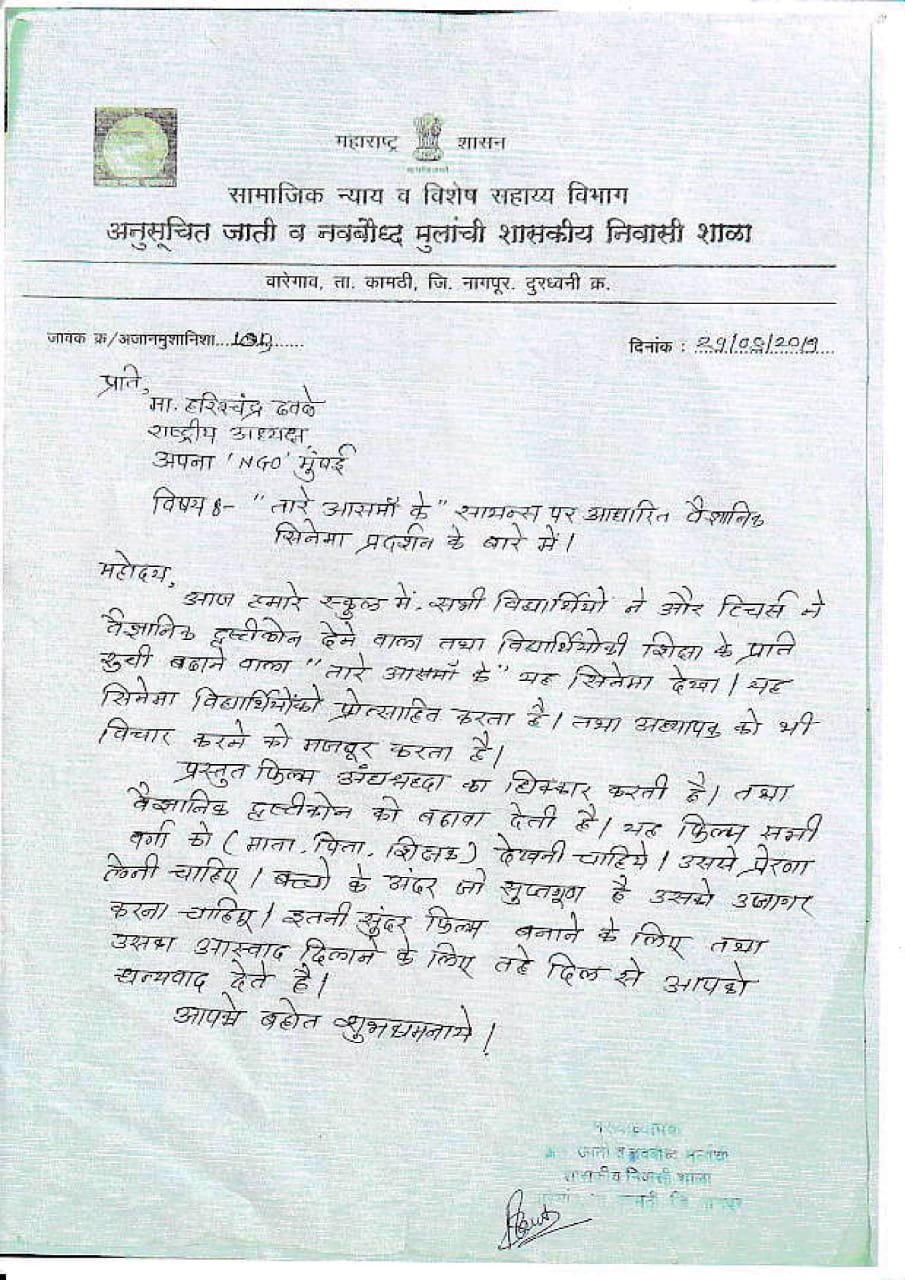 महाराष्ट्र शासन
सामाजिक न्याय व विशेष सहाय्य विभाग
अनुसूचित जाती व नवबौध्द मुलांची शासकीय निवासी शाळा
वारेगाव, ता. कामठी, जि. नागपूर. दुरध्वनी क्र.
जावक क्र/अजानमुशानिशा
दिनांक :
प्रति,
मा. हरिश्चंद्र ढवळे
राष्ट्रीय अध्यक्ष
अपना 'NGO' मुंबई
विषय :- "तारे आसमाँ के" सायन्स पर आधारित वैज्ञानिक
सिनेमा प्रदर्शन के बारे में।
महोदय,
आज हमारे स्कुल में सभी विद्यार्थियो ने और टिचर्स ने
वैज्ञानिक दृष्टीकोन देने वाला तथा विद्यार्थियोकी शिक्षा के प्रति
रुची बढाने वाला "तारे आसमाँ के" यह सिनेमा देखा। यह
सिनेमा विद्यार्थियोंको प्रोत्साहित करता है। तथा अध्यापक को भी
विचार करने को मजबूर करता है।
प्रस्तुत फिल्म अंधश्रध्दा का धिक्कार करती है। तथा
वैज्ञानिक दृष्टीकोन को बढावा देती है। यह फिल्म सभी
वर्गो को (माता, पिता, शिक्षक) देखनी चाहिये। उससे प्रेरणा
लेनी चाहिए। बच्चो के अंदर जो सुप्तगुण है उसको उजागर
करना चाहिए। इतनी सुंदर फिल्म बनाने के लिए तथा
उसका आस्वाद दिलाने के लिए तहे दिल से आपको
धन्यवाद देते है।
आपको बहोत शुभकामनाये।
जाती व नवबौध्द मुलांची
शासकीय निवासी शाळा